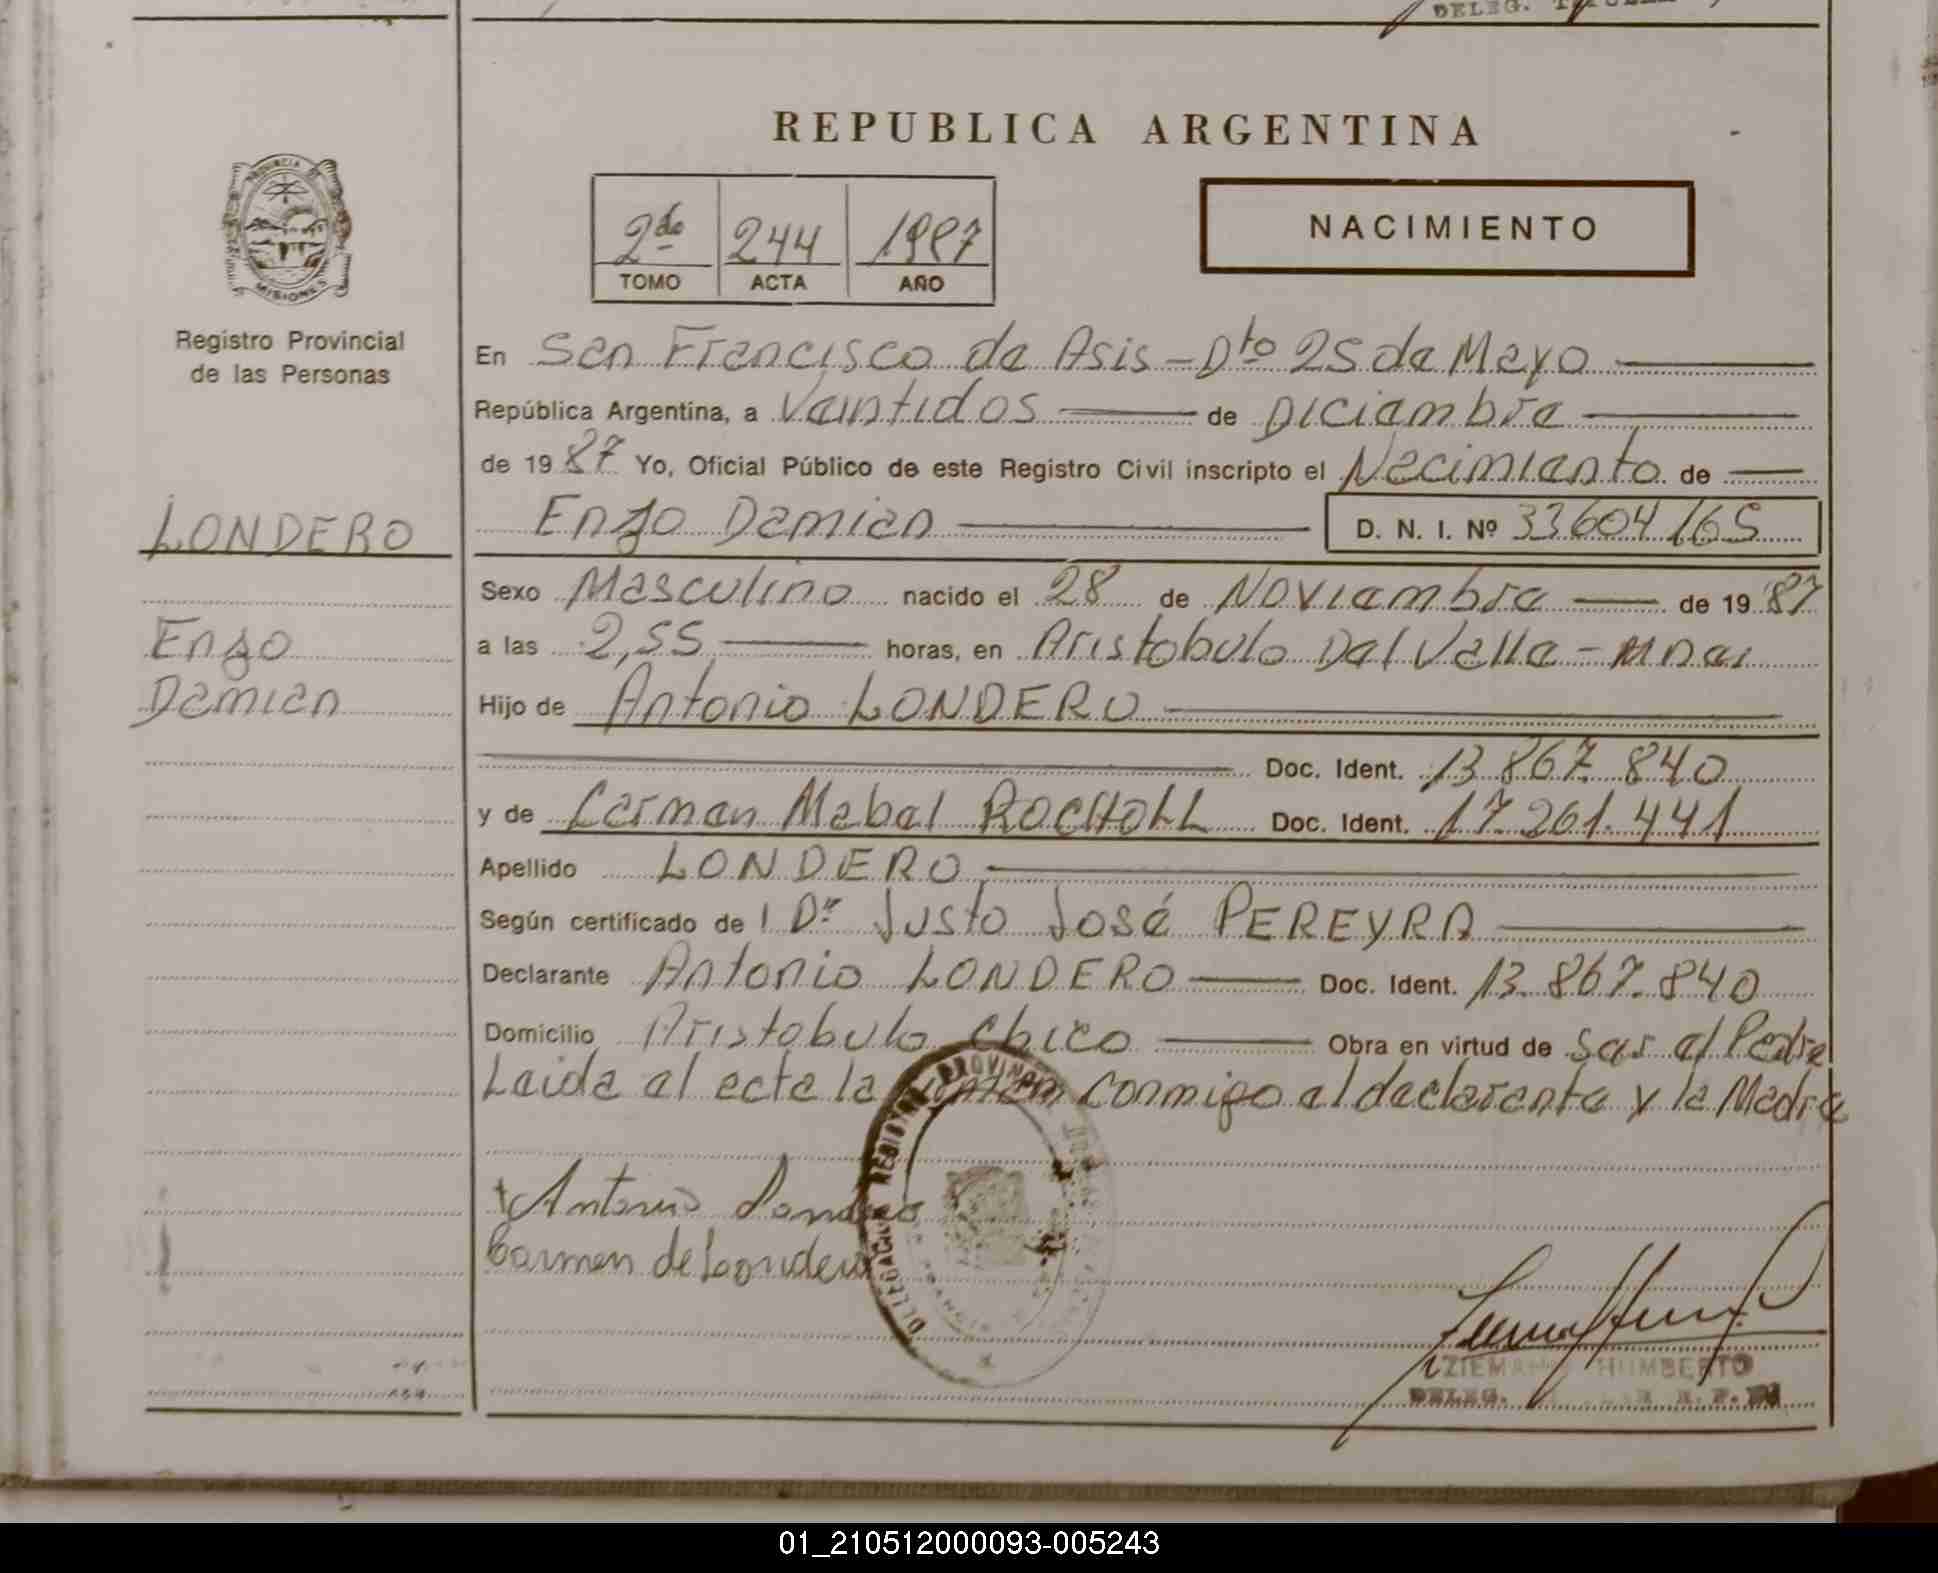 DELEG.
REPUBLICA ARGENTINA
PROVINCIA DE
MISIONES
Registro Provincial
de las Personas
2do 244 1987
TOMO ACTA AÑO
NACIMIENTO
En San Francisco de Asis - Dto 25 de Mayo
República Argentina, a Veintidos de Diciembre
de 1987 Yo, Oficial Público de este Registro Civil inscripto el Nacimiento de
LONDERO
Enzo Damian D. N. I. Nº 33604165
Sexo Masculino nacido el 28 de Noviembre de 1987
Enzo
a las 2,55 horas, en Aristobulo Del Valle - Mnes
Damian
Hijo de Antonio LONDERO
Doc. Ident. 13.867.840
y de Carmen Mabel ROCHOLL Doc. Ident. 17.261.441
Apellido LONDERO
Según certificado de l Dr Justo José PEREYRA
Declarante Antonio LONDERO Doc. Ident. 13.867.840
Domicilio Aristobulo Chico Obra en virtud de ser el Padre
Leida el acta la firman conmigo el declarante y la Madre
DELEGACION REGISTRO PROVINCIAL
Antonio Londero
Carmen de Londero
ZIEMANN HUMBERTO
DELEG. R. P.
01_210512000093-005243